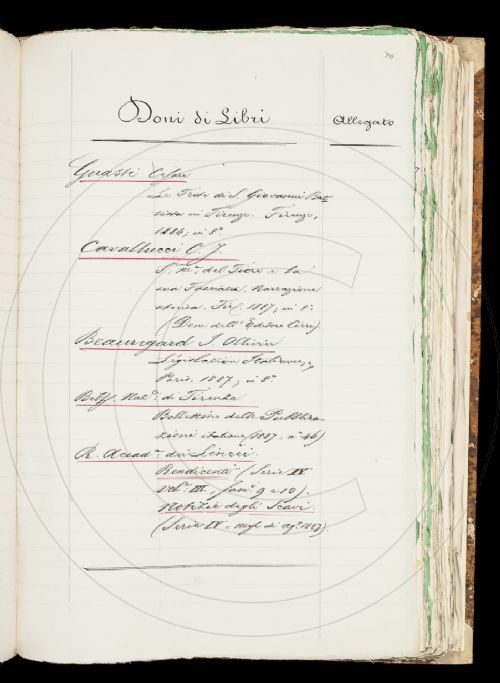 Doni di Libri
Allegato
Guasti Cesare
Le Feste di S. Giovanni Bat-
tista in Firenze. Firenze,
1884; in 8.°
Cavallucci C. J.
S. M.ª del Fiore e la
sua Facciata. Narrazione
storica. Fir. 1887, in 8.°
(Dono dell' Editore Cirri)
Beauregard J. Ollivier
Législation Italienne,
Paris, 1887; in 8.°
di Firenze
Bollettino delle Pubblica-
zioni italiane (1887. n.° 46)
R. Accad.ª dei Lincei.
Rendiconti (Serie IV
Vol.° III, fasc.° 9 e 10).
Notizie degli Scavi
(Serie IV - mese di ag.° 1887)